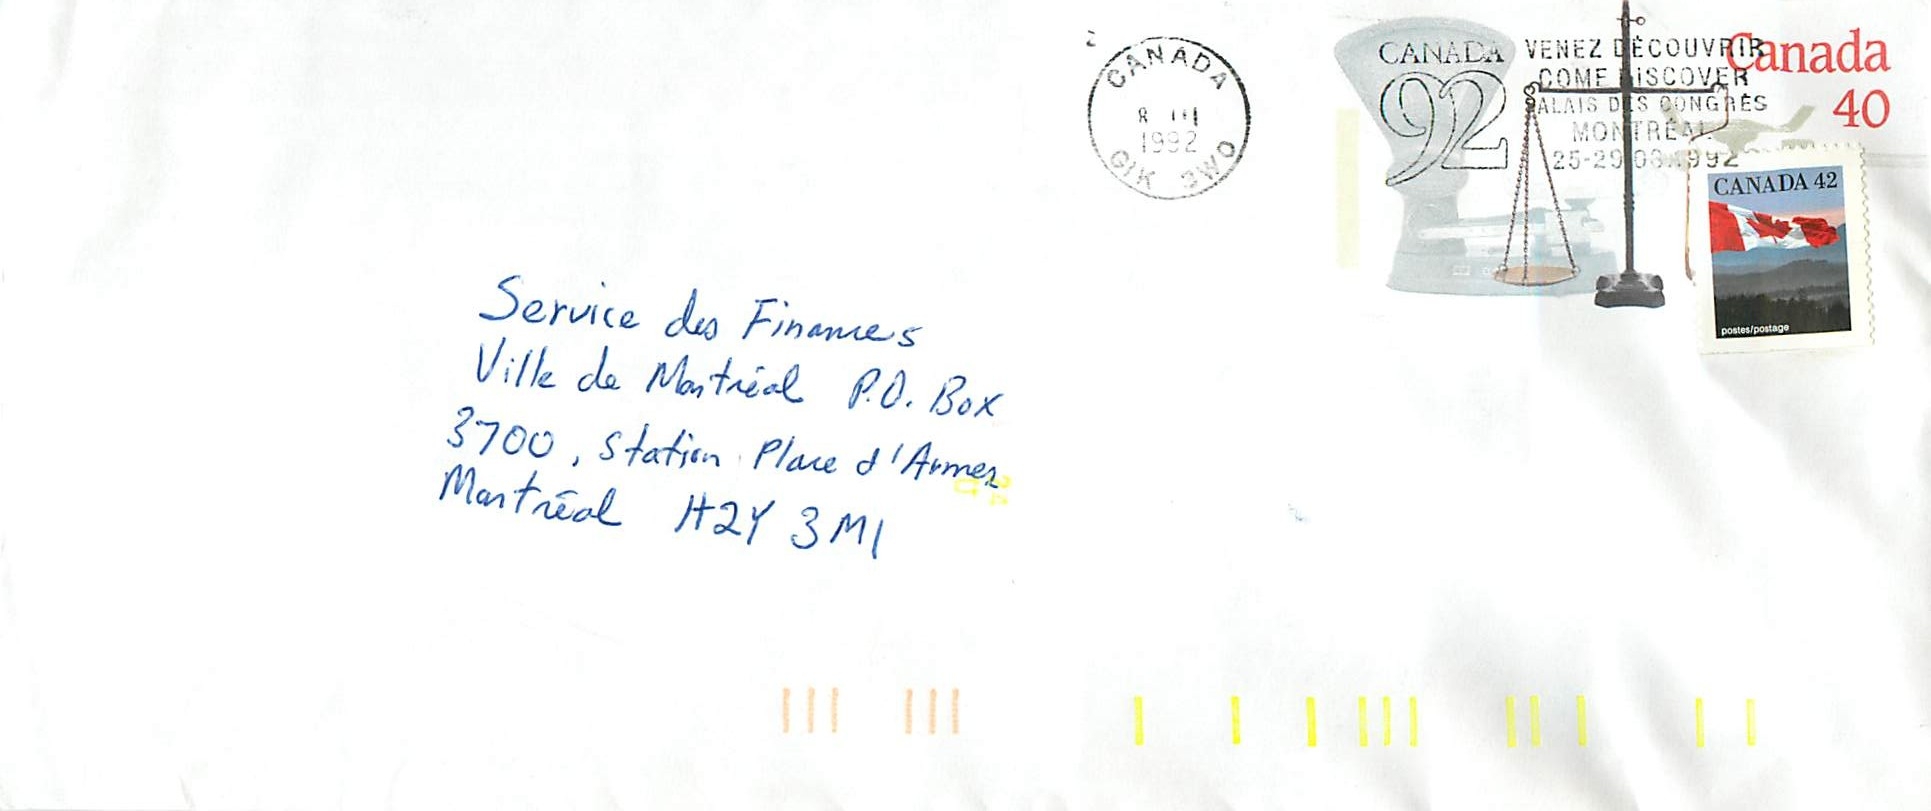 CANADA
8 III
1992
G1K 3W0
CANADA
92
VENEZ DÉCOUVRIR
COME DISCOVER
PALAIS DES CONGRÈS
MONTRÉAL
25-29 03 1992
Canada
40
CANADA 42
postes/postage
Service des Finances
Ville de Montréal P.O. Box
3700, Station Place d'Armes
Montréal H2Y 3M1